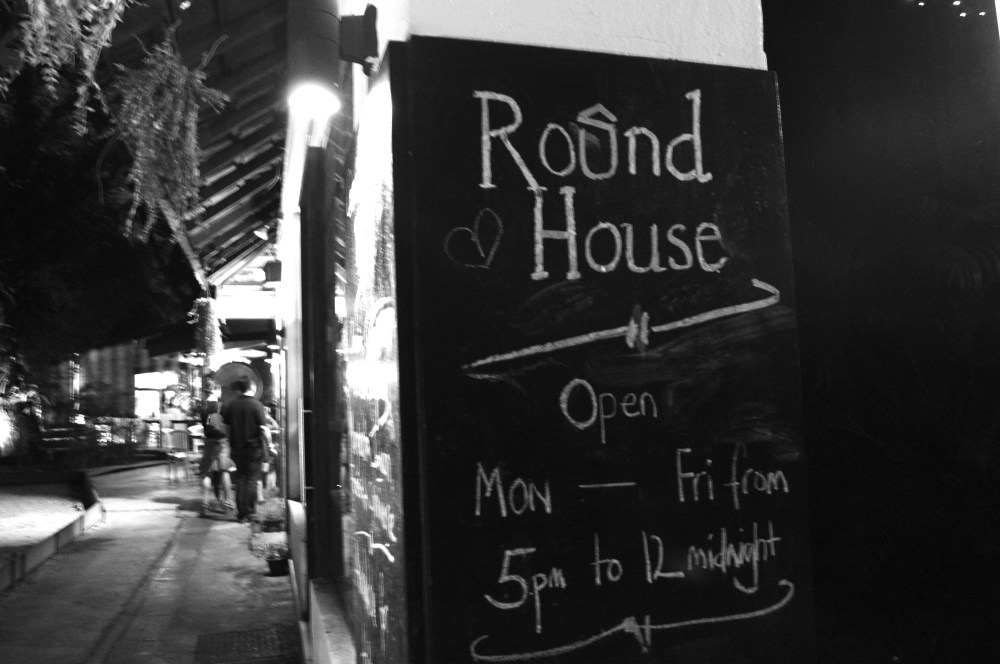 Round
House
Open
Mon — Fri from
5pm to 12 midnight